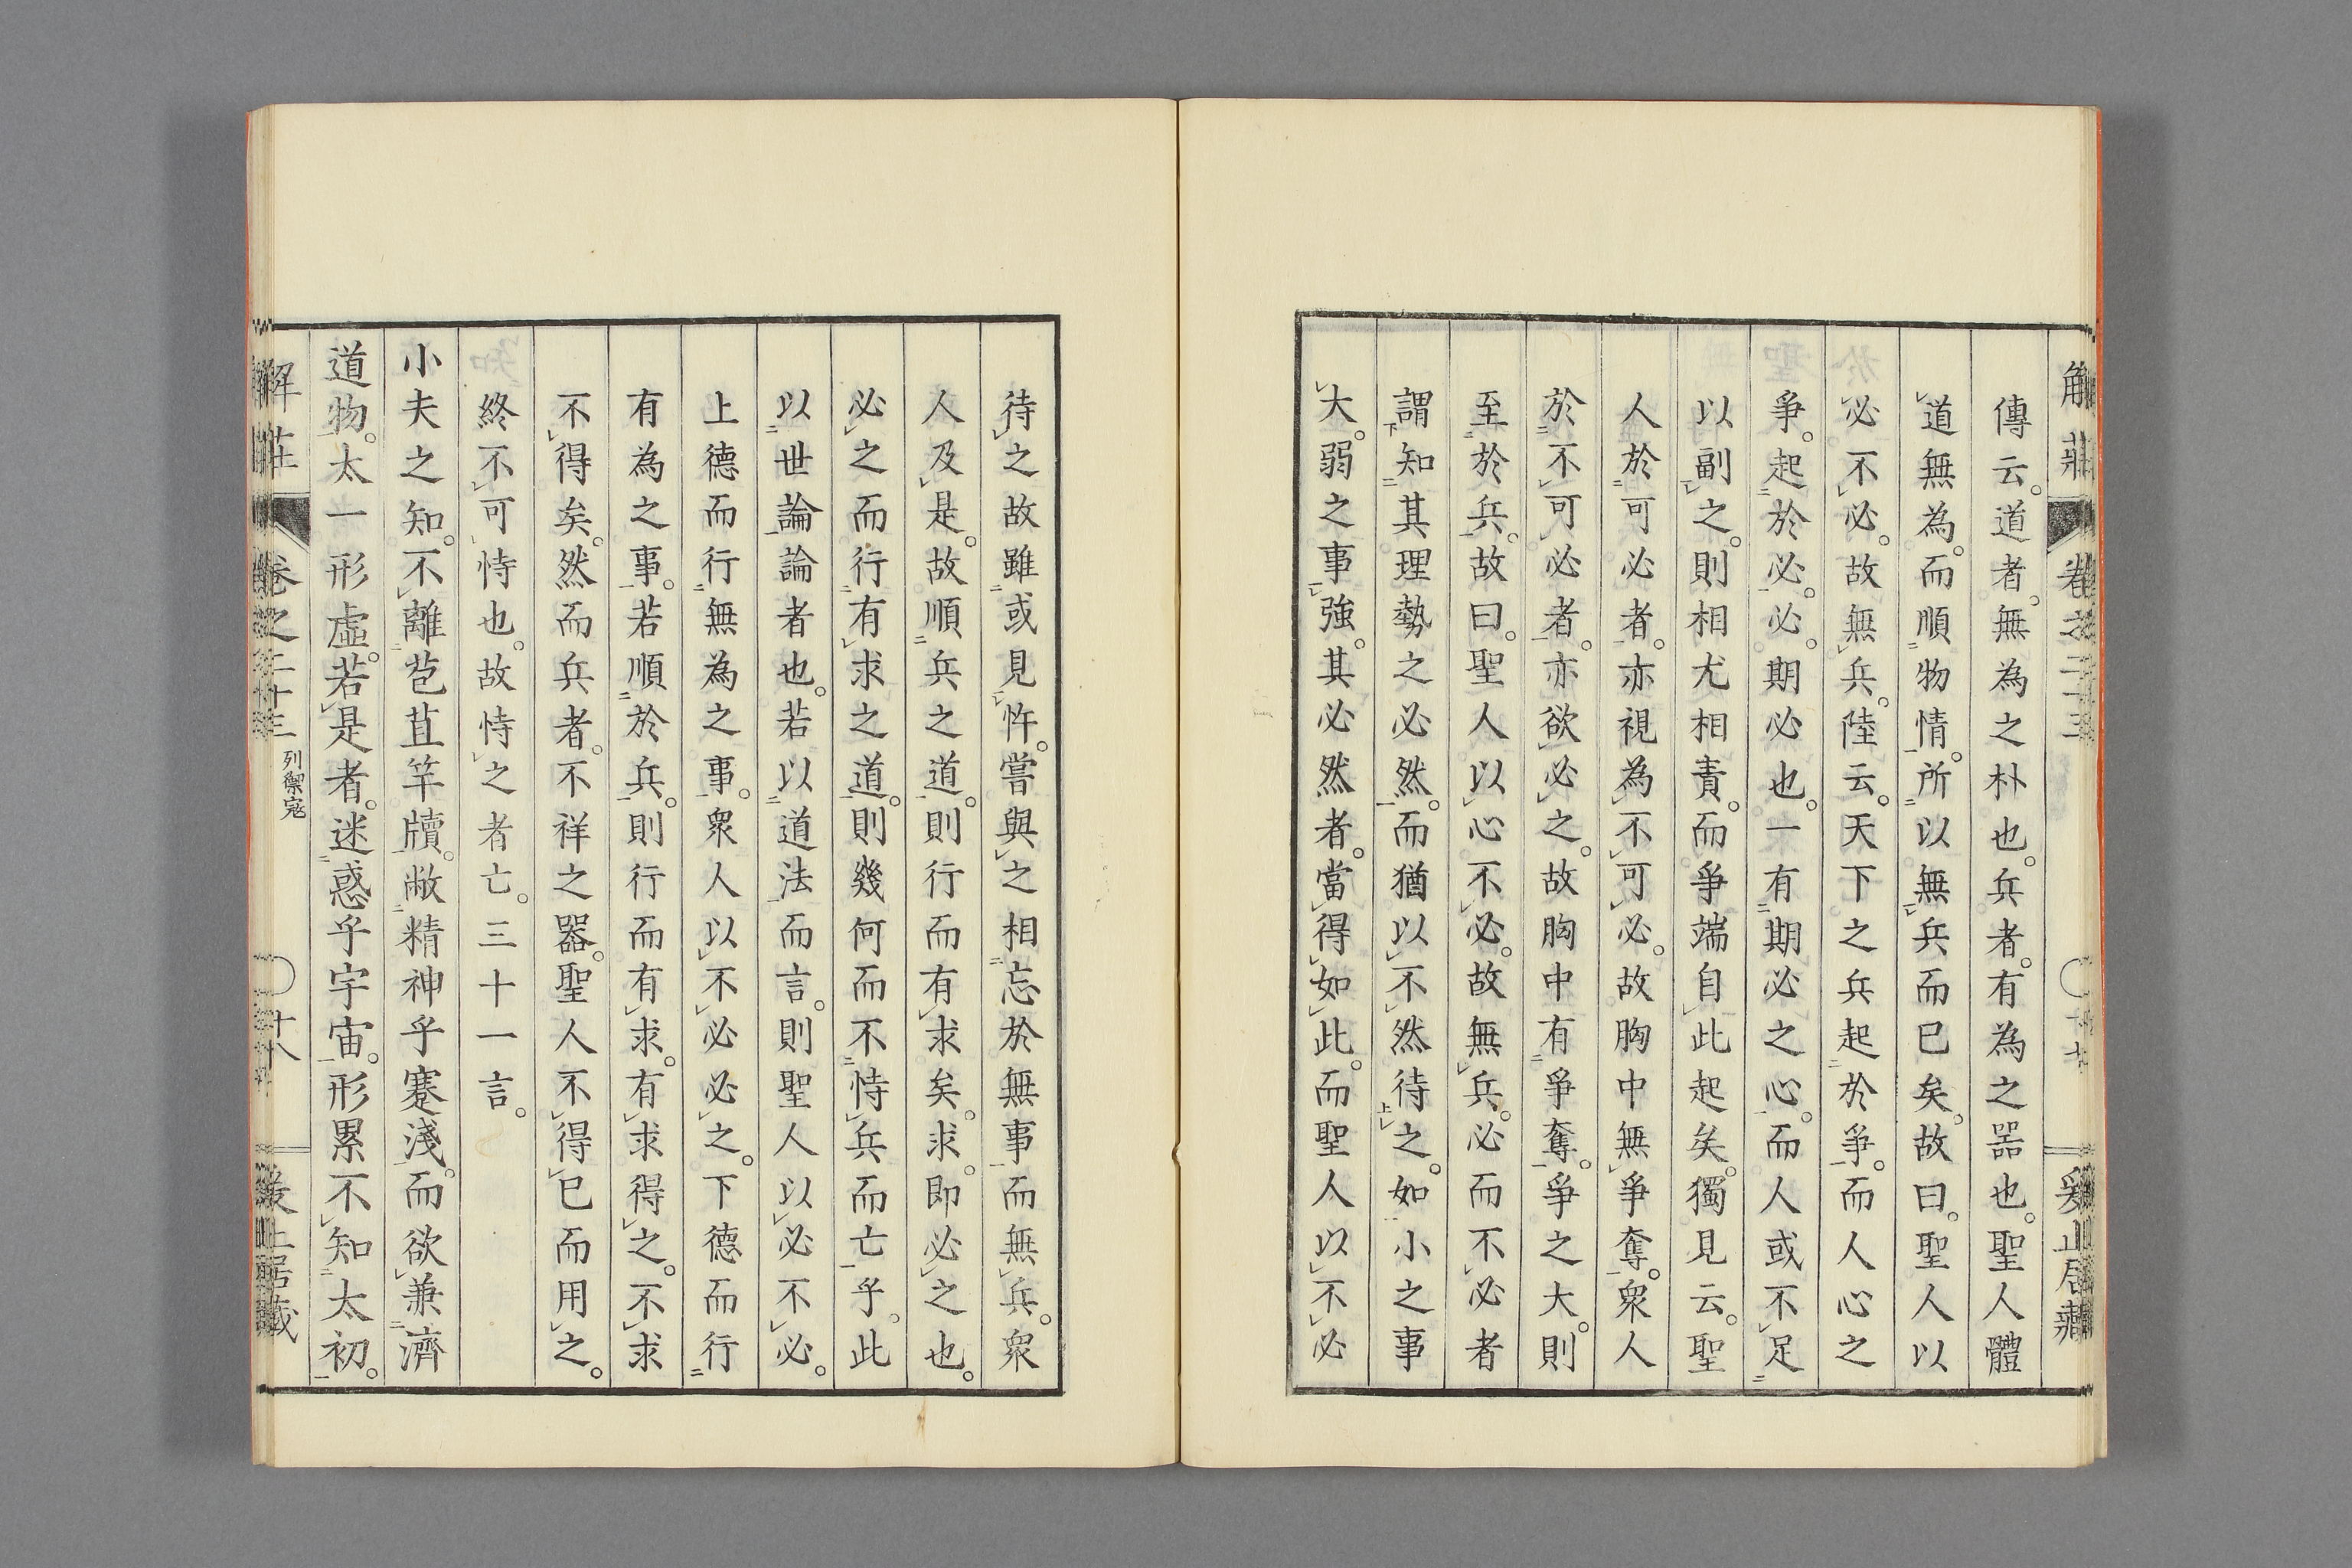 解莊 卷之二十三 十七 嚴山居藏
傳云。道者。無為之朴也。兵者。有為之器也。聖人體
道無為。而順物情。所以無兵而已矣。故曰。聖人以
必不必。故無兵。陸云。天下之兵起於爭。而人心之
爭。起於必。必。期必也。一有期必之心。而人或不足
以副之。則相尤相責。而爭端自此起矣。獨見云。聖
人於可必者。亦視為不可必。故胸中無爭奪。衆人
於不可必者。亦欲必之。故胸中有爭奪。爭之大。則
至於兵。故曰。聖人以心不必。故無兵。必而不必者
謂知其理勢之必然。而猶以不然待之。如小之事
大。弱之事強。其必然者。當得如此。而聖人以不必
待之故雖或見忤。嘗與之相忘於無事而無兵。衆
人及是。故順兵之道。則行而有求矣。求。即必之也。
必之而行有求之道。則幾何而不恃兵而亡乎。此
以世論論者也。若以道法而言。則聖人以必不必。
上德而行無為之事。衆人以不必必之。下德而行
有為之事。若順於兵。則行而有求。有求得之。不求
不得矣。然而兵者。不祥之器。聖人不得已而用之。
終不可恃也。故恃之者亡。三十一言。
小夫之知。不離苞苴竿牘。敝精神乎蹇淺。而欲兼濟
道物。太一形虛。若是者。迷惑乎宇宙。形累不知太初。
解莊 卷之二十三 列禦寇 十八 嚴山居藏